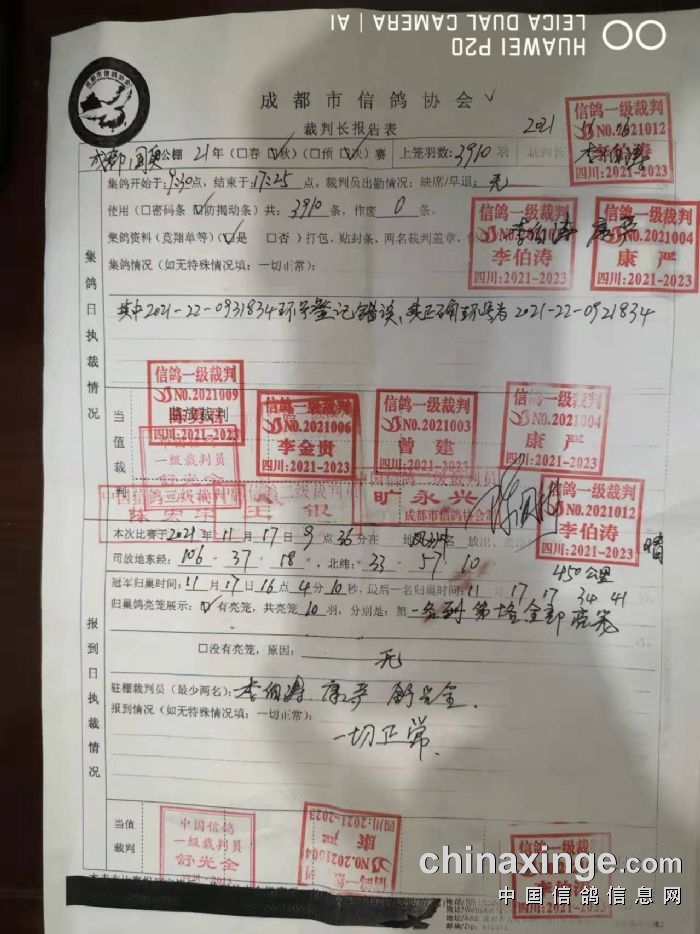 HUAWEI P20
LEICA DUAL CAMERA | AI
成都市信鸽协会
成都市信鸽协会
裁判长报告表
2021
成都国奥公棚 21年(□春☑秋)(□预☑决)赛 上笼羽数:3910羽 裁判长
信鸽一级裁判
NO.2021012
李伯涛
四川:2021-2023
集鸽开始于:9:30点,结束于17:25点。裁判员出勤情况:缺席/早退:无
使用(□密码条☑防揭动条)共:3910条,作废0条。
集鸽资料(竞翔单等)(☑是 □否)打包,贴封条,两名裁判盖章,
李伯涛 康严
信鸽一级裁判
李伯涛
四川:2021-2023
信鸽一级裁判
NO.2021004
康严
四川:2021-2023
集鸽情况(如无特殊情况填:一切正常):
集鸽日执裁情况
其中2021-22-0931834环号登记错误,其正确环号为2021-22-0921834
当值裁判
信鸽一级裁判
NO.2021009
四川:2021-2023
NO.2021006
李金贵
四川:2021-2023
信鸽一级裁判
NO.2021003
曾建
四川:2021-2023
信鸽一级裁判
NO.2021004
康严
四川:2021-2023
一级裁判员
舒光全
中国信鸽二级裁判员
旷永兴
成都市信鸽协会
NO.2021012
李伯涛
四川:2021-2023
本次比赛于2021年11月17日9点36分在
晴
司放地东经:106·37·18",北纬:33·57·10
450公里
冠军归巢时间:11月17日16点4分10秒,最后一名归巢时间:11 17 17 34 41
归巢鸽亮笼展示:☑有亮笼,共亮笼10羽,分别是:第一名到第拾全部亮笼
□没有亮笼,原因:无
报到日执裁情况
驻棚裁判员(最少两名):李伯涛 康严 舒光全.
报到情况(如无特殊情况填:一切正常):
一切正常.
当值裁判
中国信鸽
一级裁判员
舒光全
四川:2021-2023
康严
NO.2021004
信鸽一级裁判
chinaxinge.com
中国信鸽信息网